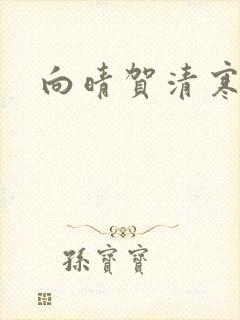 向晴贺清寒
孫寶寶